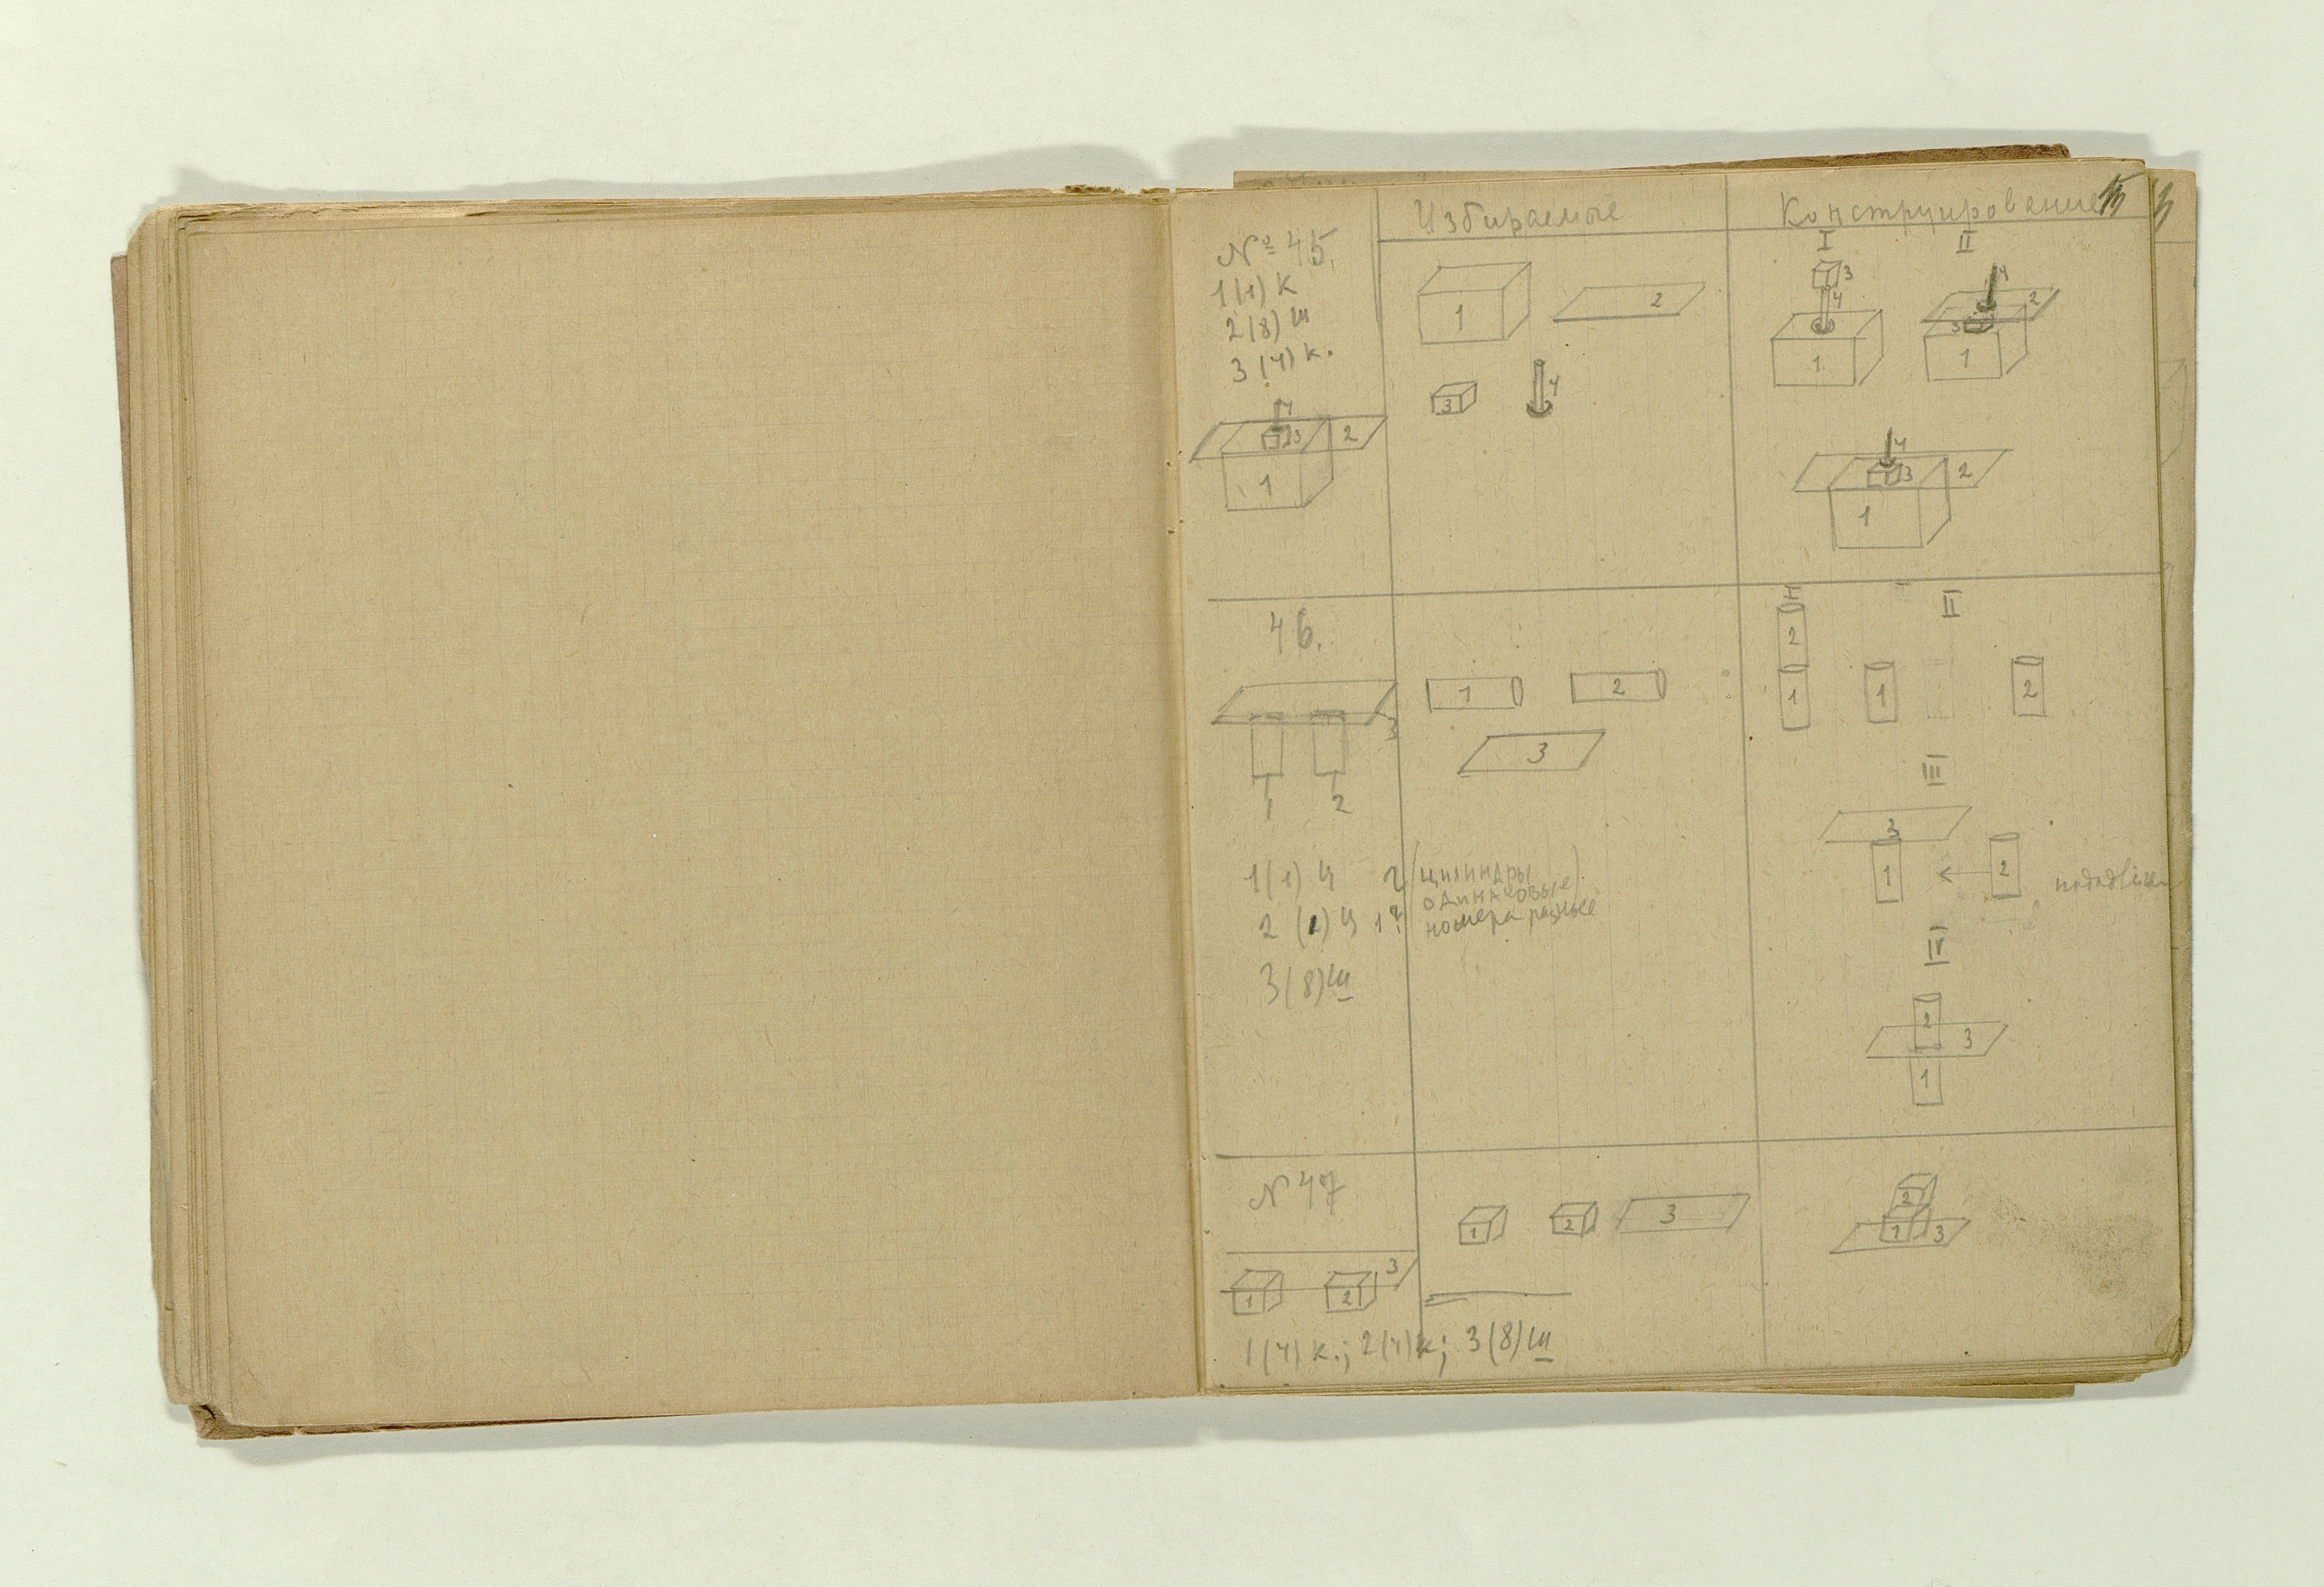 Избираемые
Конструирование
№ 45.
1(1) К
2(8) ш
3(4) к.
4
3
2
1
1
2
3
4
I
II
3
4
1
4
2
3
1
4
3
2
1
46.
3
1
2
1(1) ц
2 (1) ц 1?
3(8) ш
1
2
3
(цилиндры
одинаковые).
номера разные
I
II
2
1
1
2
III
3
1
2
IV
2
3
1
N 47
3
1
2
1(4) к.; 2(4) к; 3(8) ш
1
2
3
2
1
3